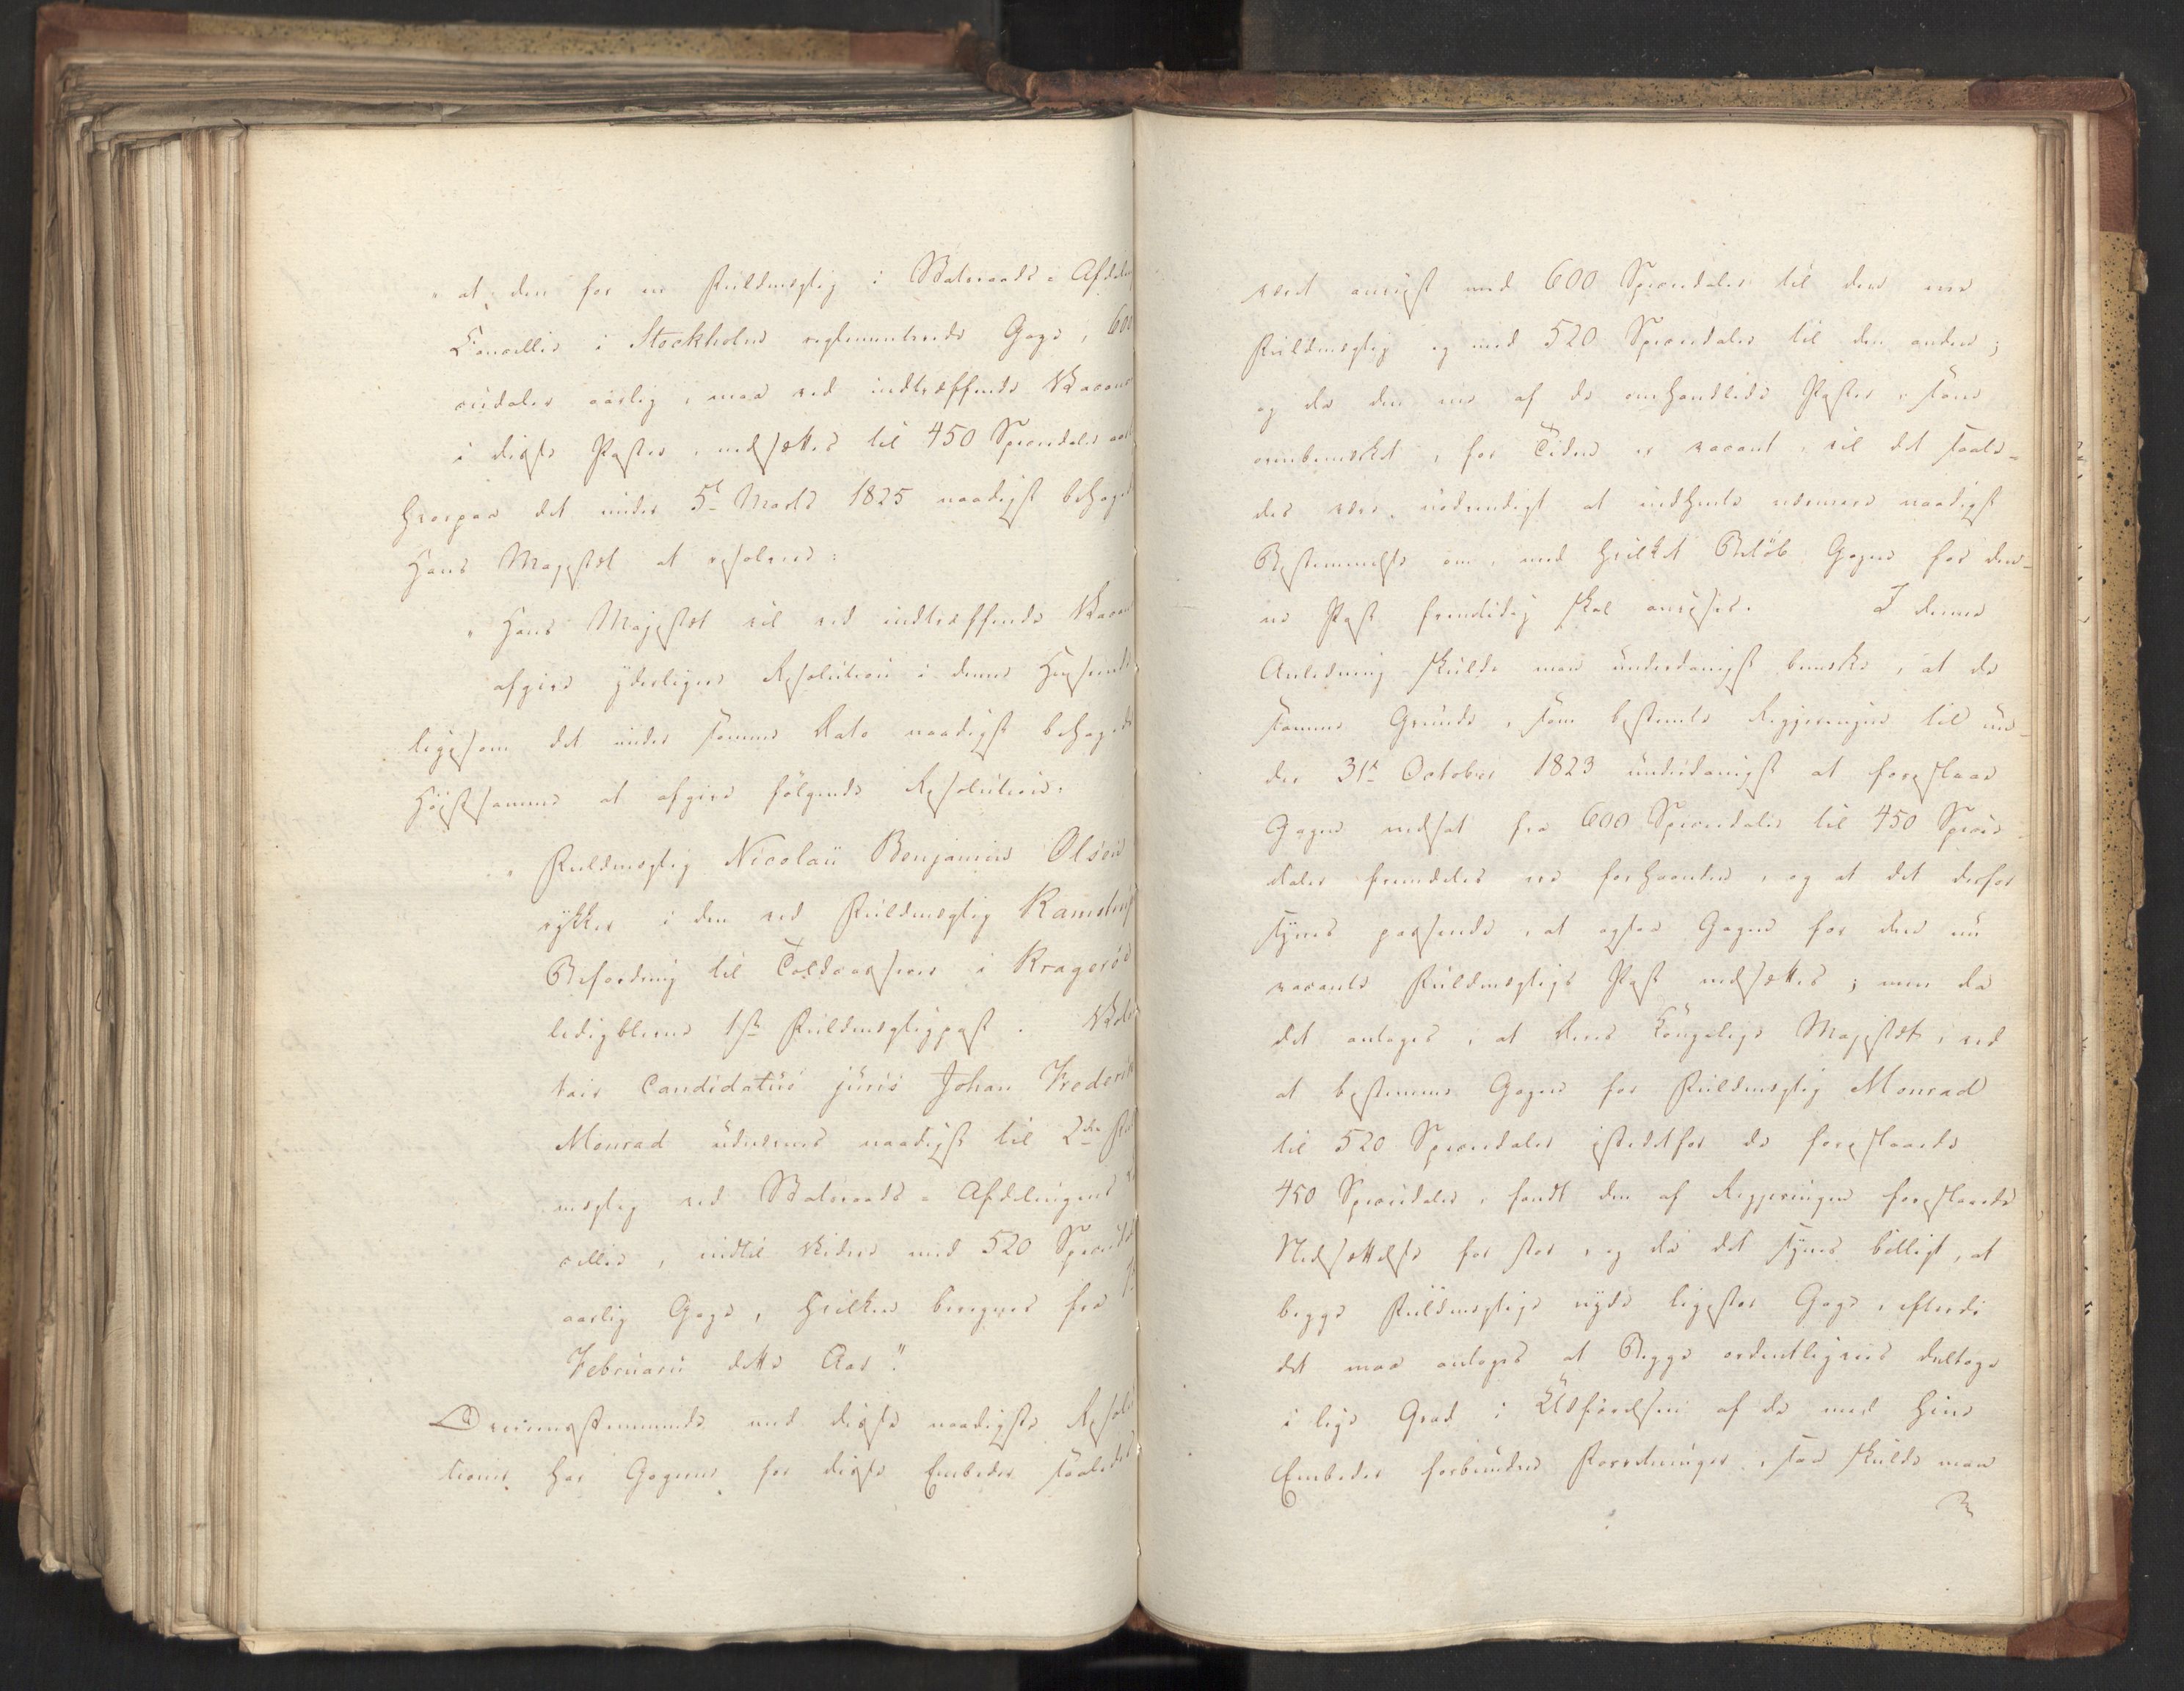 "at den for en Fuldmægtig i Statsraads-Afdel
Cancellie i Stockholm reglementerede Gage, 600
ciedaler aarlig, maa ved indtræffende Vacanc
i disse Poster, nedsættes til 450 Speciedaler aarl
hvorpaa det under 5t Marts 1825 naadigst behaged
Hans Majestæt at resolvere:
"Hans Majestæt vil ved indtræffende Vacan
afgive yderligere Resolution i denne Henseende
ligesom det under samme Dato naadigst behagede
Høistsamme at afgive følgende Resolution:
"Fuldmægtig Nicolai Benjamin Olsen
rykker i den ved Fuldmægtig
Befordring til Toldcasserer i Kragerøe
ledigblevne 1ste Fuldmægtigpost. Volon
tair Candidatus juris Johan Frederik
Monrad udnævnes naadigst til 2den Ful
mægtig ved Statsraads-Afdelingens
cellie, indtil Videre med 520 Speciedal
aarlig Gage, hvilken beregnes fra 1
Februarii dette Aar".
Overeensstemmende med disse naadigste Resolu
tioner har Gagerne for disse Embeder saaledes
været anviist med 600 Speciedaler til den ene
Fuldmægtig og med 520 Speciedaler til den anden;
og da den ene af de omhandlede Poster, som
ovenbemærkt, for Tiden er vacant, vil det saale-
des være nødvendigt at indhente nærmere naadigst
Bestemmelse om, med hvilket Beløb Gagen for den-
ne Post fremtidig skal anvises. I denne
Anledning skulde man underdanigst bemærke, at de
samme Grunde, som bestemte Regjeringen til un-
der 31te October 1823 underdanigst at foreslaae
Gagen nedsat fra 600 Speciedaler til 450 Specie-
daler fremdeles ere forhaanden, og at det derfor
synes passende, at ogsaa Gagen for den nu
vacante Fuldmægtigs Post nedsættes; men da
det antages, at Deres Kongelige Majestæt, ved
at bestemme Gagen for Fuldmægtig Monrad
til 520 Speciedaler istedetfor de foreslaaede
450 Speciedaler, fandt den af Regjeringen foreslaaede
Nedsættelse for stor, og da det synes billigt, at
begge Fuldmægtige nyde ligestor Gage, efterdi
det maa antages at Begge ordentligviis deeltage
i lige Grad i Udførelsen af de med hine
Embeder forbundne Forretninger, saa skulde man